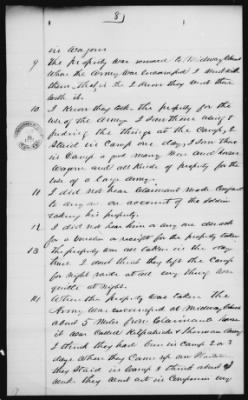 8
in wagons
9 The property was removed to Midway
Where the Army was encamped I went with
them, that is how I know they went there
with it.
10 I know they took the property for the
use of the Army I saw them using &
feeding the things at the Camp, I
Staid in Camp one day, I saw them
in Camp a good many Men and Horses
Wagons and all kinds of property for the
use of a large army.
11 I did not hear Claimant make Complaint
to any one on account of the Soldiers
taking his property.
12 I did not hear him or any one ask
for a voucher or receipt for the property taken
13 The property was all taken in the day
time I don't think they left the Camp
for night raids at all every thing was
quiet at night.
14 When the property was taken the
Army was encamped at Midway
about 5 Miles from Claimants house
it was Called Kilpatricks & Sherman Army
I think they had been in Camp 2 or 3
days When they Came up on
they staid in Camp I think about
and they went out in Companies my